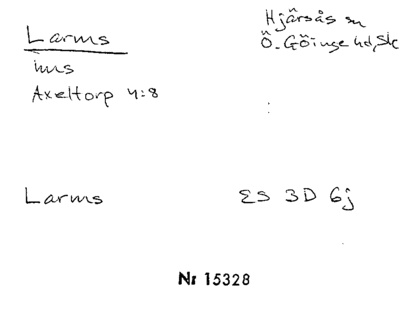 Larms
ims
Axeltorp 4:8
Hjärsås sn
Ö. Göinge hd, Sk
Larms
ES 3D 6j
Nr 15328